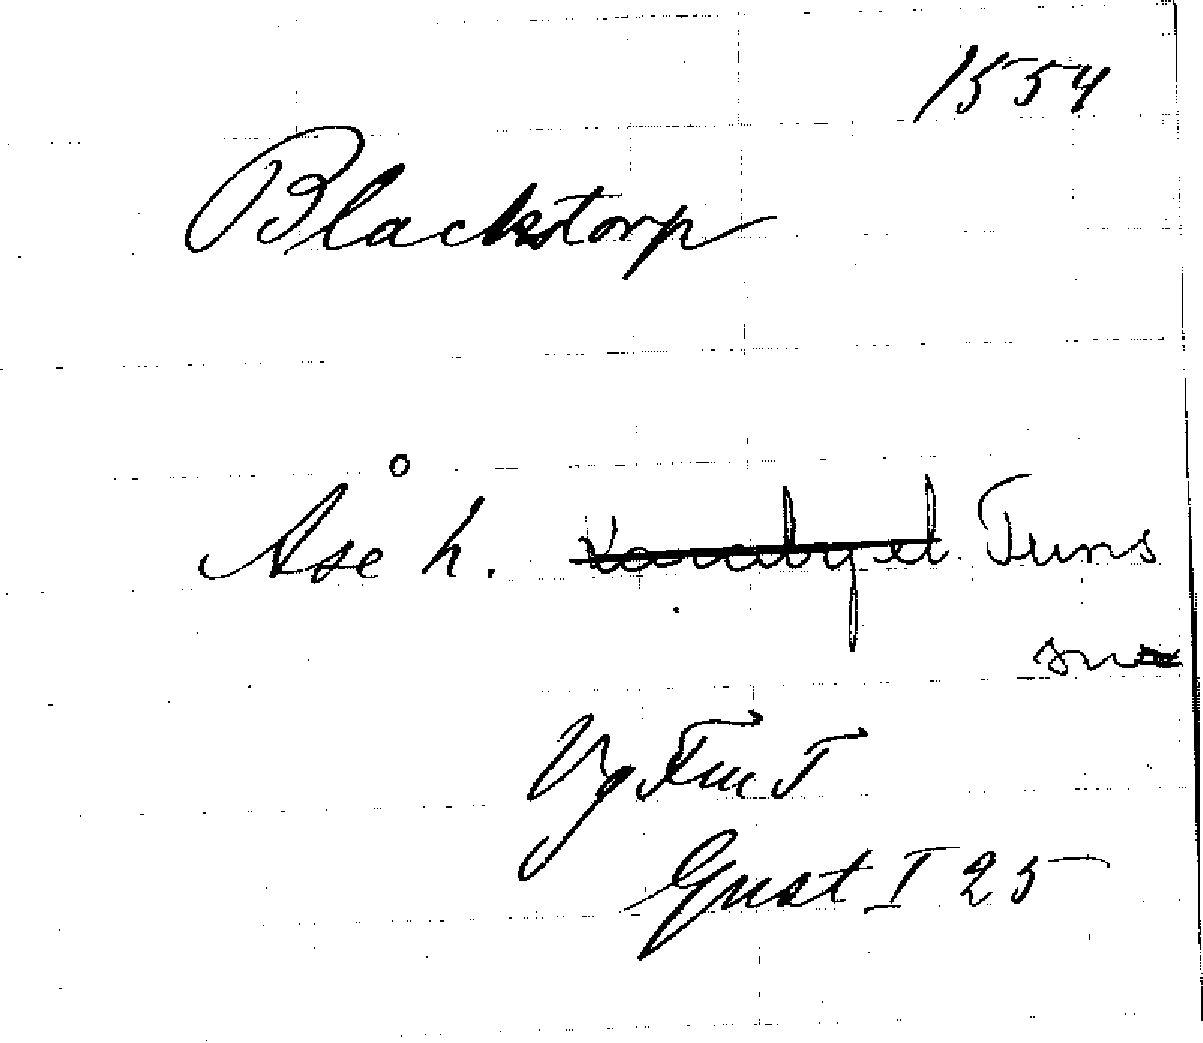 1554
Blackstorp
Åse h. Tuns
sn
Vg
Gust I 25